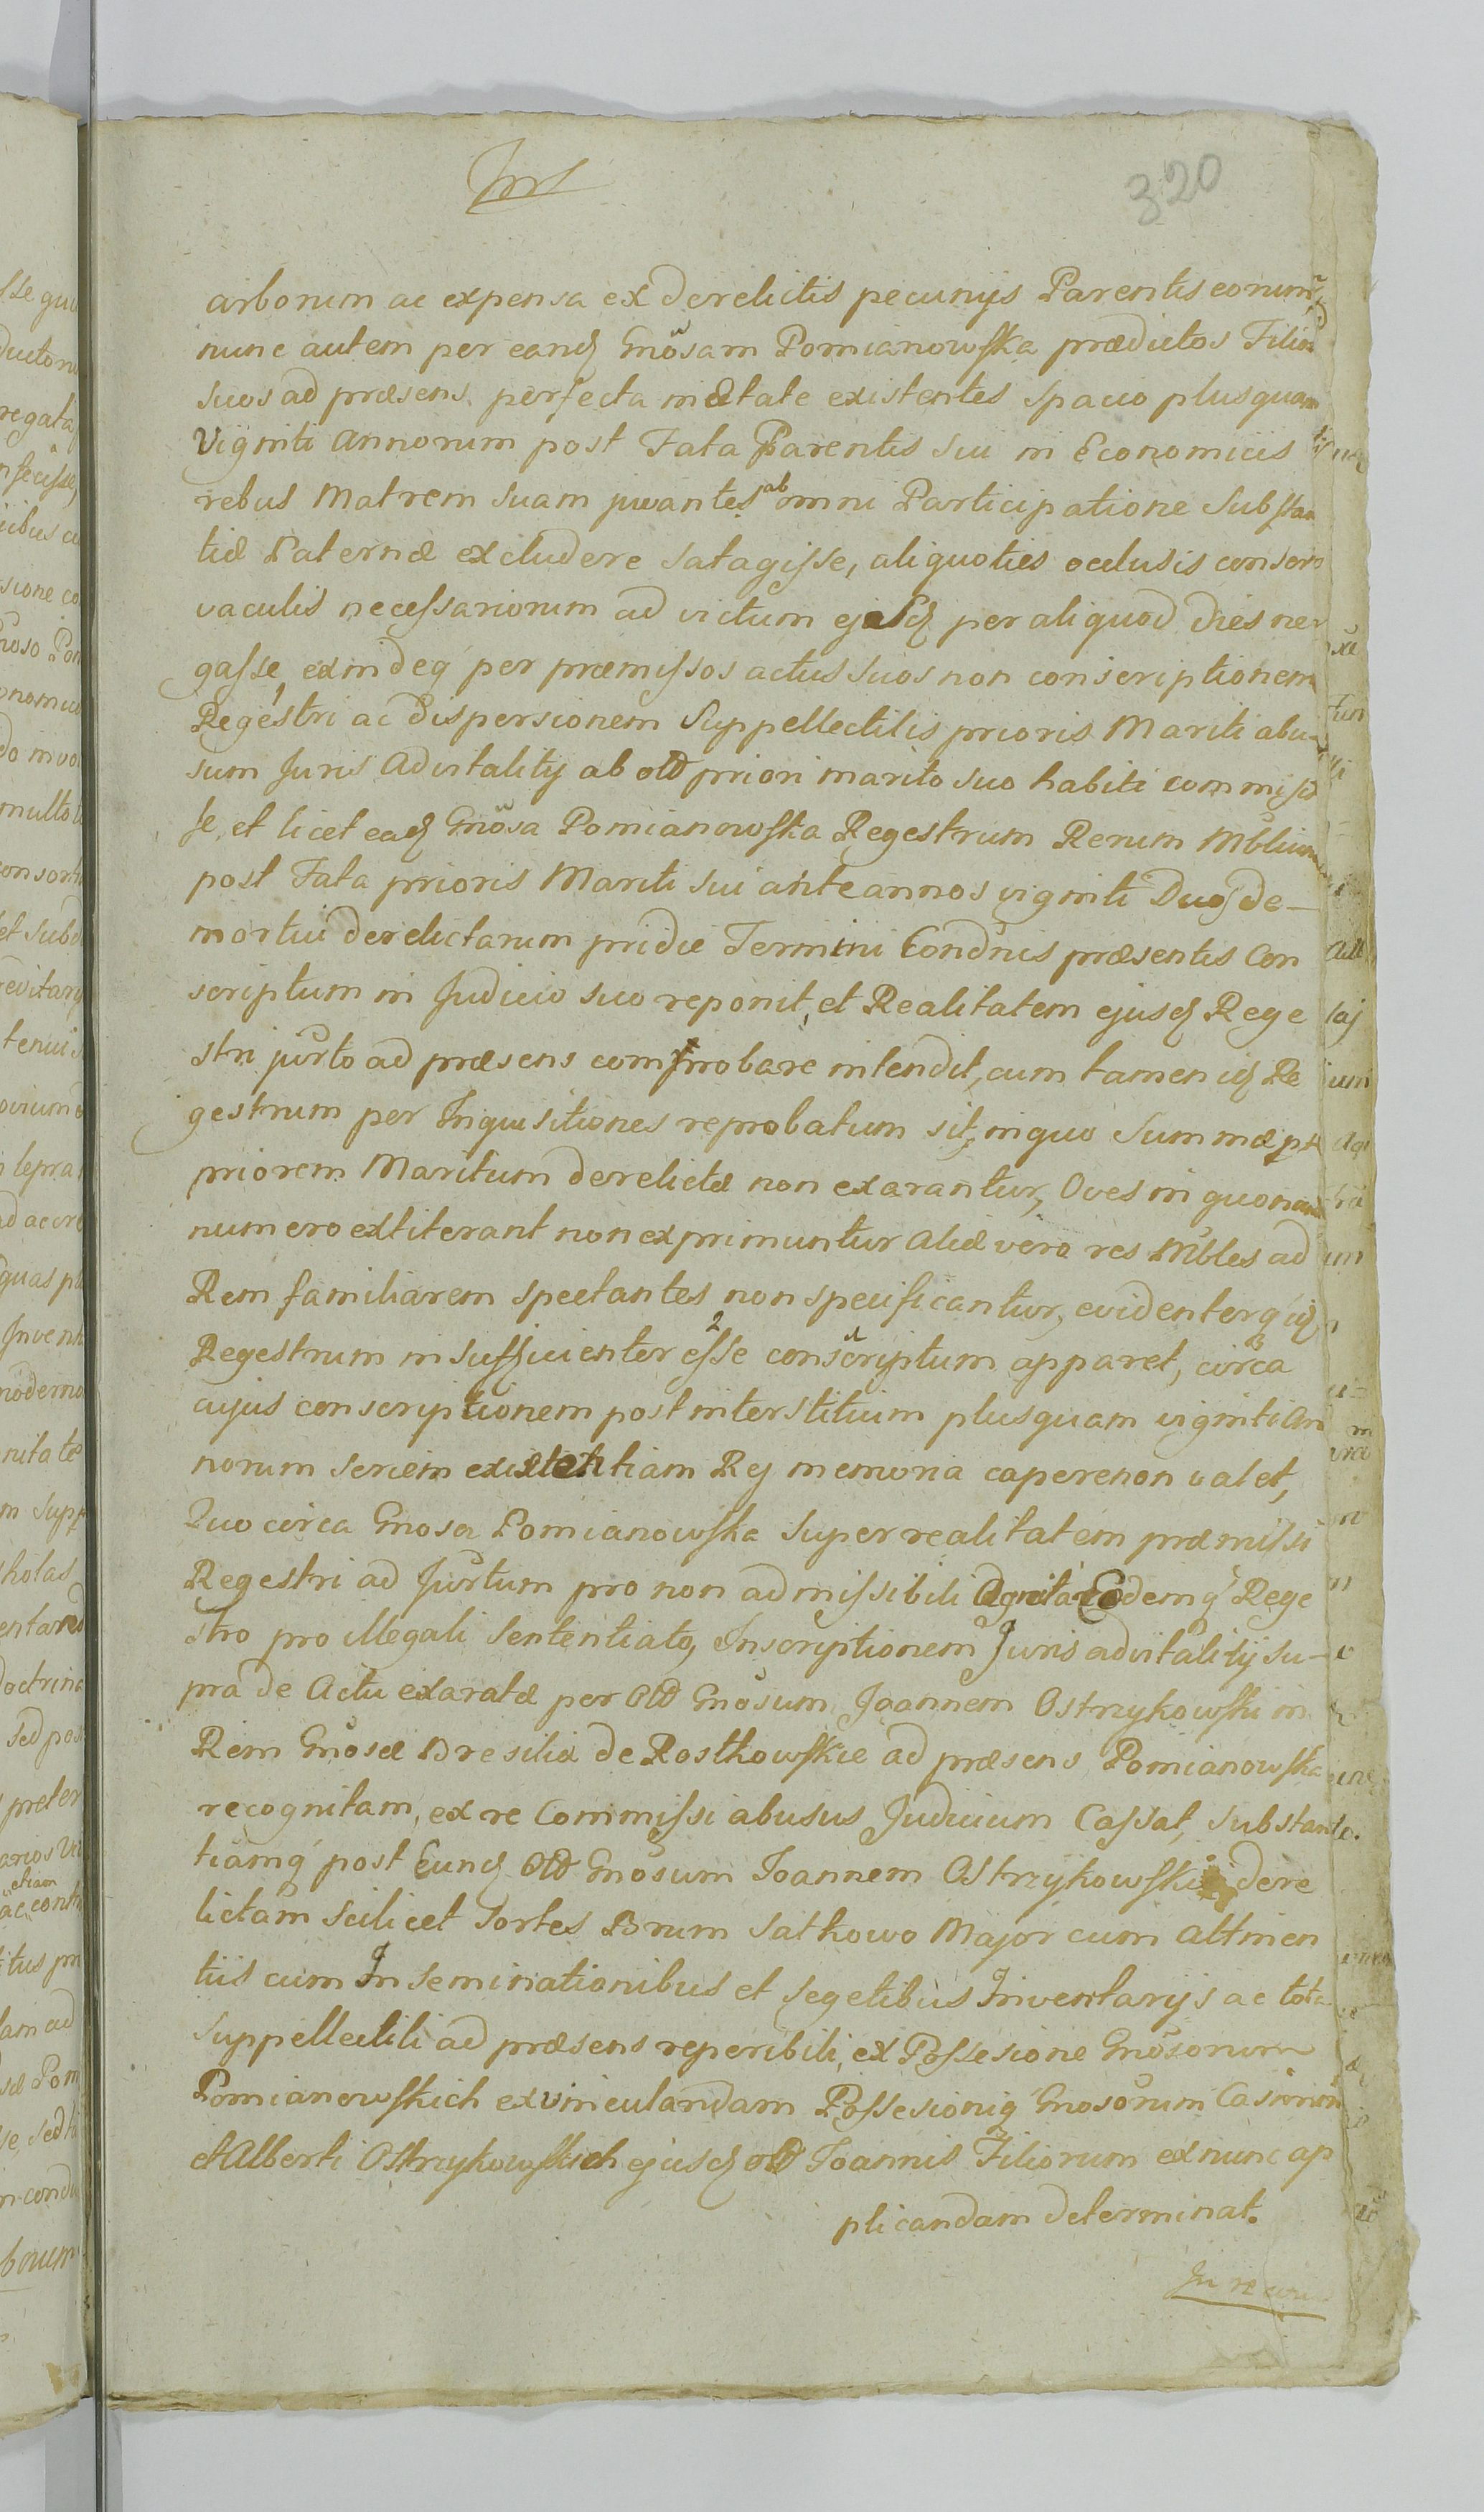 320
arborum ac expensa ex derelictis pecunijs Parentis eorum
nunc autem per eand Gnosam Pomianowska prædictos Filios
suos ad præsens perfecta in ætate existentes spacio plusquam
Viginti annorum post Fata Parentis sui in Economicis
rebus Matrem suam juvantes ab omni Participatione Substan
tiæ Paternæ excludere satagisse, aliquoties oclusis conser
vaculis necessariorum ad victum ejusd per aliquod dies ne
gasse, exindeq per præmissos actus suos non conscriptionem
Regestri ac dispersionem Suppellectilis prioris Mariti abu
sum Juris Advitalitij ab olD priori marito suo habiti commisis
se, et licet ead Gnosa Pomianowska Regestrum Rerum Mblium
post Fata prioris Mariti sui ante annos viginti Duos de-
mortui derelictarum pridie Termini Condnis præsentis con
scriptum in Judicio suo reponit, et Realitatem ejusd Rege
stri jurto ad præsens comprobare intendit, cum tamen id Re
gestrum per Inquisitiones reprobatum sit, in quo Summæ p
priorem Maritum derelictæ non exarantur, Oves in quonam
numero extiterant non exprimuntur aliæ vero res Mbles ad
Rem familiarem spectantes non specificantur, evidenterq id
Regestrum insufficienter 2 esse 1 conscriptum apparet, circa
cujus conscriptionem post interstitium plusquam viginti an
norum seriem existentiam Rej memoria capere non valet,
Quo circa Gnosa Pomianowska super realitatem præmissi
Regestri ad Jurtum pro non admissibili Agnita Eodemq Rege
stro pro illegali sententiato, Inscriptionem Juris advitalitij su-
pra de Actu exaratæ per olD Gnosum Joannem Ostrzykowski in
Rem Gnosæ Bresilia de Rostkowskie ad præsens Pomianowska
recognitam, ex re Commissi abusus Judicium Cassat, substan
tiamq post Eund olD Gnosum Joannem Ostrzykowski dere
lictam scilicet Sortes Brum Satkowo Major cum attinen
tiis cum Inseminationibus et segetibus Inventarijs ac tota
suppellectili ad præsens reperibili, ex Possesione Gnosorum
Pomianowskich exvinculandam Possesioniq Gnosorum Casimiri
et Alberti Ostrzykowskich ejusd olD Joannis Filiorum ex nunc ap
plicandam determinat.
In re